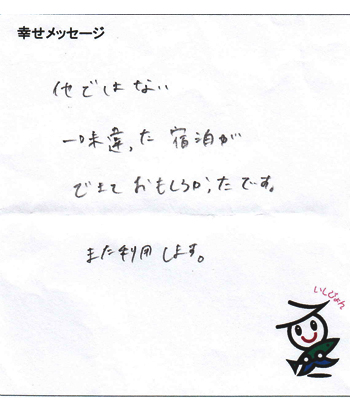 幸せメッセージ
他ではない
一味違った宿泊が
できておもしろかったです。
また利用します。
いしぴょん